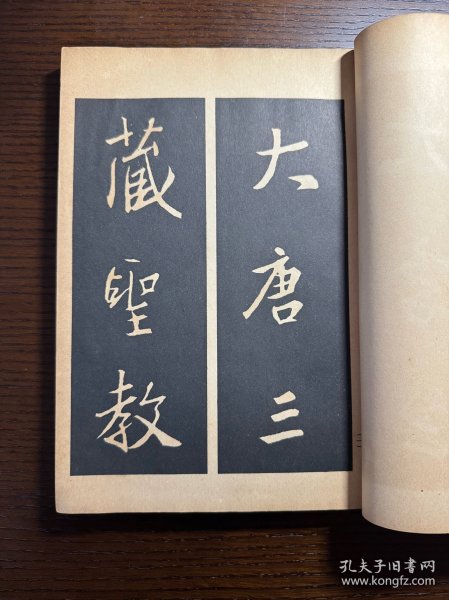 大唐三
藏聖教
孔夫子旧书网
www.kongfz.com